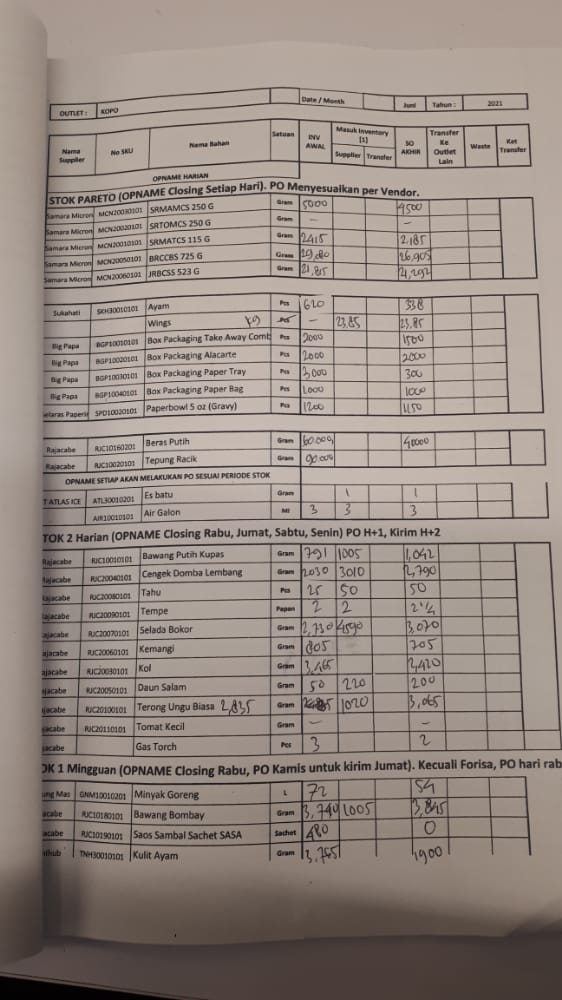 OUTLET : KOPO Date / Month Juni Tahun : 2021
Nama Supplier No SKU Nama Bahan Satuan INV AWAL Masuk Inventory [1] Supplier Transfer SO AKHIR Transfer Ke Outlet Lain Waste Ket Transfer
OPNAME HARIAN
STOK PARETO (OPNAME Closing Setiap Hari). PO Menyesuaikan per Vendor.
Samara Micron MCN20030101 SRMAMCS 250 G Gram 5000 4500
Samara Micron MCN20020101 SRTOMCS 250 G Gram - -
Samara Micron MCN20010101 SRMATCS 115 G Gram 2415 2.185
Samara Micron MCN20050101 BRCCBS 725 G Gram 29.680 26.905
Samara Micron MCN20060101 JRBCSS 523 G Gram 21.85 21,292
Sukahati SKH30010101 Ayam Pcs 620 338
Wings kg Pcs - 23,85 23,85
Big Papa BGP10010101 Box Packaging Take Away Comb Pcs 2000 1500
Big Papa BGP10020101 Box Packaging Alacarte Pcs 2000 2000
Big Papa BGP10030101 Box Packaging Paper Tray Pcs 3000 300
Big Papa BGP10040101 Box Packaging Paper Bag Pcs 1.000 1000
elaras Paperi SPD10020101 Paperbowl 5 oz (Gravy) Pcs 1200 1150
Rajacabe RJC10160201 Beras Putih Gram 60.000 40000
Rajacabe RJC10020101 Tepung Racik Gram 90.000
OPNAME SETIAP AKAN MELAKUKAN PO SESUAI PERIODE STOK
T ATLAS ICE ATL30010201 Es batu Gram 1 1
AIR10010101 Air Galon Ml 3 3 3
TOK 2 Harian (OPNAME Closing Rabu, Jumat, Sabtu, Senin) PO H+1, Kirim H+2
Rajacabe RJC10010101 Bawang Putih Kupas Gram 791 1005 1,042
Rajacabe RJC20040101 Cengek Domba Lembang Gram 2030 3010 2,790
ajacabe RJC20080101 Tahu Pcs 25 50 50
ajacabe RJC20090101 Tempe Papan 2 2 2 1/4
ajacabe RJC20070101 Selada Bokor Gram 2,730 4590 3,070
ajacabe RJC20060101 Kemangi Gram 805 705
ajacabe RJC20030101 Kol Gram 3,465 2,420
ajacabe RJC20050101 Daun Salam Gram 50 220 200
ajacabe RJC20100101 Terong Ungu Biasa 2,835 Gram 1020 3,065
ajacabe RJC20110101 Tomat Kecil Gram - -
jacabe Gas Torch Pcs 3 2
OK 1 Mingguan (OPNAME Closing Rabu, PO Kamis untuk kirim Jumat). Kecuali Forisa, PO hari rab
ung Mas GNM10010201 Minyak Goreng L 72 54
acabe RJC10180101 Bawang Bombay Gram 3,740 1005 3,845
acabe RJC10190101 Saos Sambal Sachet SASA Sachet 480 0
nhub TNH30010101 Kulit Ayam Gram 3,765 1900